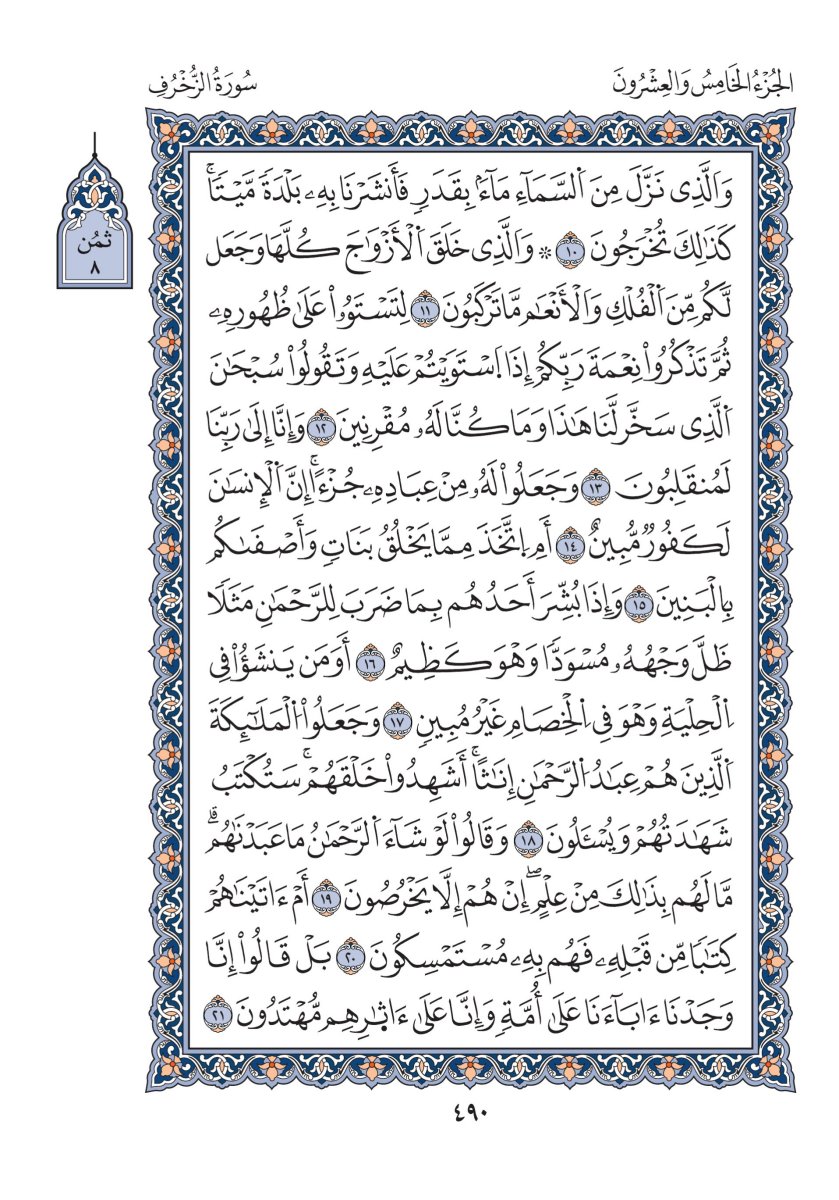 الجُزْءُ الخَامِسُ وَالعِشْرُونَ
سُورَةُ الزُّخْرُفِ
وَاَلَّذِى نَزَّلَ مِنَ اَلسَّمَآءِ مَآءَۢ بِقَدَرٍ فَأَنشَرْنَا بِهِۦ بَلْدَةً مَّيْتًاۚ
كَذَٰلِكَ تُخْرَجُونَ ١٠ ۞ وَاَلَّذِى خَلَقَ اَلْأَزْوَٰجَ كُلَّهَا وَجَعَل
لَّكُم مِّنَ اَلْفُلْكِ وَاَلْأَنْعَٰمِ مَا تَرْكَبُونَ ١١ لِتَسْتَوُۥاْ عَلَىٰ ظُهُورِهِۦ
ثُمَّ تَذْكُرُواْ نِعْمَةَ رَبِّكُمْ إِذَا اَسْتَوَيْتُمْ عَلَيْهِ وَتَقُولُواْ سُبْحَٰنَ
اَلَّذِى سَخَّر لَّنَا هَٰذَا وَمَا كُنَّا لَهُۥ مُقْرِنِينَ ١٢ وَإِنَّا إِلَىٰ رَبِّنَا
لَمُنقَلِبُونَ ١٣ وَجَعَلُواْ لَهُۥ مِنْ عِبَادِهِۦ جُزْءًاۚ إِنَّ اَلْإِنسَٰنَ
لَكَفُورٌ مُّبِينٌ ١٤ أَمِ اِتَّخَذَ مِمَّا يَخْلُقُ بَنَاتٍ وَأَصْفَىٰكُم
بِالْبَنِينَ ١٥ وَإِذَا بُشِّرَ أَحَدُهُم بِمَا ضَرَبَ لِلرَّحْمَٰنِ مَثَلًا
ظَلَّ وَجْهُهُۥ مُسْوَدًّا وَهْوَ كَظِيمٌ ١٦ أَوَمَن يَنشَؤُاْ فِى
اِلْحِلْيَةِ وَهْوَ فِى اِلْخِصَامِ غَيْرُ مُبِينٍ ١٧ وَجَعَلُواْ اُلْمَلَٰٓئِكَةَ
اَلَّذِينَ هُمْ عِبَٰدُ اُلرَّحْمَٰنِ إِنَٰثًاۚ أَشَهِدُواْ خَلْقَهُمْۚ سَتُكْتَبُ
شَهَٰدَتُهُمْ وَيُسْـَٔلُونَ ١٨ وَقَالُواْ لَوْ شَآءَ اَلرَّحْمَٰنُ مَا عَبَدْنَٰهُمۗ
مَّا لَهُم بِذَٰلِكَ مِنْ عِلْمٍۖ إِنْ هُمْ إِلَّا يَخْرُصُونَ ١٩ أَمْ ءَاتَيْنَٰهُمْ
كِتَٰبًا مِّن قَبْلِهِۦ فَهُم بِهِۦ مُسْتَمْسِكُونَ ٢٠ بَلْ قَالُواْ إِنَّا
وَجَدْنَا ءَابَآءَنَا عَلَىٰ أُمَّةٍ وَإِنَّا عَلَىٰ ءَاثَٰرِهِم مُّهْتَدُونَ ٢١
ثمُن
٨
٤٩٠